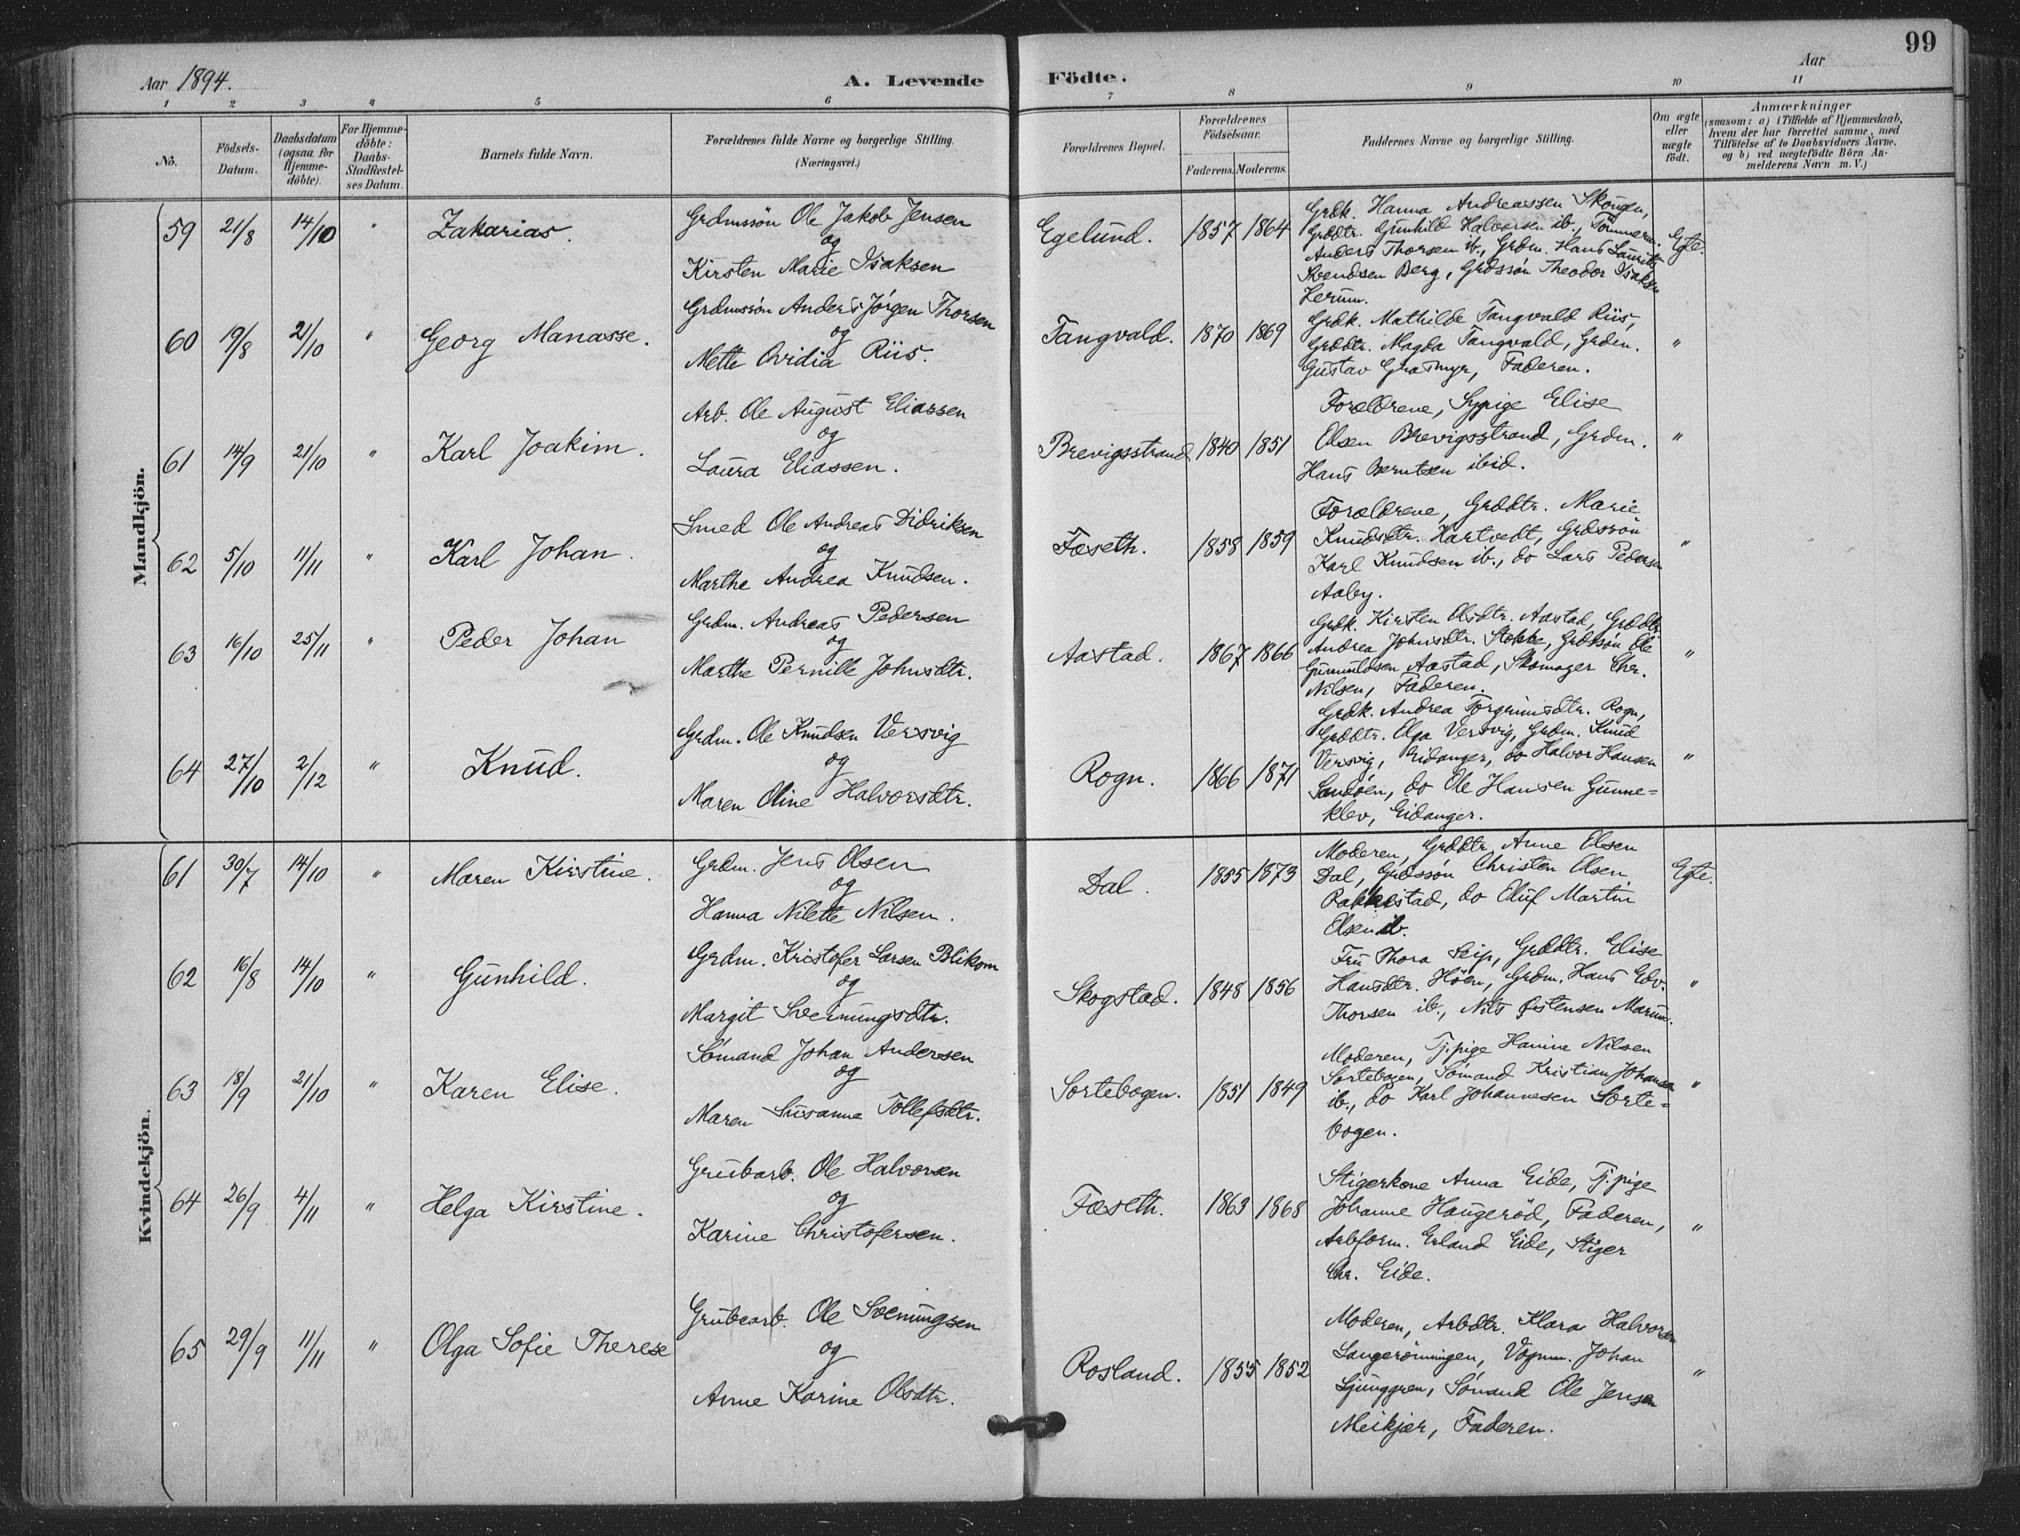 99
Aar 1894.
A. Levende Födte.
Aar
1 2 3 4 5 6 7 8 9 10 11
No.
Födsels-
Datum.
Daabsdatum
(ogsaa for
Hjemme-
döbte).
For Hjemme-
döbte:
Daabs-
Stadfæstel-
ses Datum.
Barnets fulde Navn.
Forældrenes fulde Navne og borgerlige Stilling.
(Næringsvei.)
Forældrenes Bopæl.
Forældrenes
Födselsaar.
Faderens. Moderens.
Faddernes Navne og borgerlige Stilling.
Om ægte
eller
uægte
født.
Anmærkninger
(saasom: a) i Tilfælde af Hjemmedaab,
hvem der har forrettet samme, med
Tilföielse af to Daabsvidners Navne.
og b) ved uægtefödte Börn An-
melderens Navn m. V.)
Mandkjön.
59 21/8 14/10 " Zakarias.
Grdmssön Ole Jakob Jensen
og
Kirsten Marie Isaksen
Egelund. 1857 1864
Grdk. Hanna Andreassen Skougen,
Grddtr. Gunhild Halvorsen ib., Tømmerm.
Anders Thorsen ib., Grdm. Hans Lauritz
Svendsen Berg, Grdssön Theodor Isaksen
Herum.
Egte.
60 19/8 21/10 " Georg Manasse.
Grdmssön Anders Jörgen Thorsen
og
Mette Ovidia Riis.
Tangvald. 1870 1869
Grdk. Mathilde Tangvald Riis,
Grddtr. Magda Tangvald, Grdm.
Gustav Grasmyr, Faderen.
"
61 14/9 21/10 " Karl Joakim.
Arb. Ole August Eliassen
og
Laura Eliassen.
Brevigsstrand 1840 1851
Forældrene, Sypige Elise
Olsen Brevigsstrand, Grdm.
Hans Berntsen ibid.
"
62 5/10 11/11 " Karl Johan.
Smed Ole Andreas Didriksen
og
Marthe Andrea Knudsen.
Fæseth. 1858 1859
Forældrene, Grddtr. Marie
Knudsdtr. Hartvedt, Grdssön
Karl Knudsen ib., do Lars Pedersen
Aaby.
"
63 16/10 25/11 " Peder Johan
Grdm. Andreas Pedersen
og
Marthe Pernille Johnsdtr.
Aastad. 1867 1866
Grdk. Kirsten Olsdtr. Aastad, Grddtr.
Andrea Johnsdtr. Stokke, Grdssön Ole
Gunnuldsen Aastad, Skomager Chr.
Nilsen, Faderen.
"
64 27/10 2/12 " Knud.
Grdm. Ole Knudsen Versvig
og
Maren Oline Halvorsdtr.
Rogn. 1866 1871
Grdk. Andrea Torgrimsdtr. Rogn,
Grddtr. Olga Versvig, Grdm. Knud
Versvig, Eidanger, do Halvor Hansen
Sandöen, do Ole Hansen Gunne-
klev, Eidanger.
"
Kvindekjön.
61 30/7 14/10 " Maren Kirstine.
Grdm. Jens Olsen
og
Hanna Nilette Nilsen.
Dal. 1855 1873
Moderen, Grddtr. Anne Olsen
Dal, Grdssön Christen Olsen
Rakkestad, do Oluf Martin
Olsen ib.
Egte.
62 16/8 14/10 " Gunhild.
Grdm. Kristofer Larsen Blikom
og
Margit Sveinungsdtr.
Skogstad. 1848 1856
Fru Thora Seip, Grddtr. Elise
Hansdtr. Höen, Grdm. Hans Edv.
Thorsen ib., Nils Østensen Marum.
"
63 18/9 21/10 " Karen Elise.
Sömand Johan Andersen
og
Maren Susanna Tollefsdtr.
Sortebogen. 1851 1849
Moderen, Tj.pige Hanine Nilsen
Sortebogen, Sömand Kristian Johansen
ib., do Karl Johannesen Sorte-
bogen.
"
64 26/9 4/11 " Helga Kirstine.
Grubearb. Ole Halvorsen
og
Karine Christofersen.
Fæseth. 1863 1868
Stigerkone Anna Eide, Tj.pige
Johanne Haugeröd, Faderen,
Arbform. Erland Eide, Stiger
Chr. Eide.
"
65 29/9 11/11 " Olga Sofie Therese
Grubearb. Ole Sveinungsen
og
Anne Karine Olsdtr.
Rosland. 1855 1852
Moderen, Arbdtr. Klara Halvorsen
Langerönningen, Vognm. Johan
Ljunggren, Sömand Ole Jensen
Meikjær, Faderen.
"